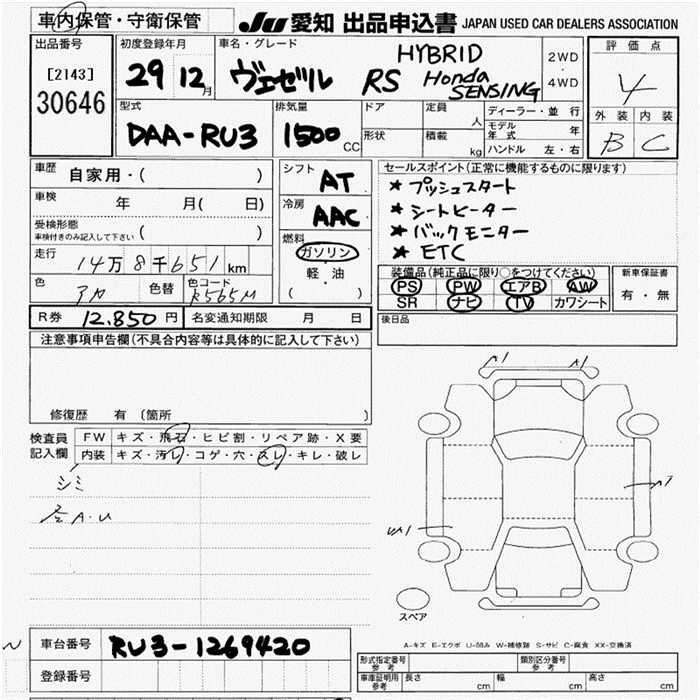 車内保管・守衛保管
JU 愛知 出品申込書 JAPAN USED CAR DEALERS ASSOCIATION
出品番号
[2143]
30646
初度登録年月
29 12月
車名・グレード
ヴェゼル RS HYBRID Honda SENSING
2WD・4WD
評価点
4
外装 内装
B C
型式
DAA-RU3
排気量
1500 CC
ドア
形状
定員 人
積載 kg
ディーラー・並行
モデル年式 年
ハンドル 左・右
車歴 自家用・( )
車検 年 月( 日)
受検形態
車検付きのみ記入して下さい ( )
走行 14万8千651km
色 アカ 色替 色コード R565M
シフト AT
冷房 AAC
燃料
ガソリン
軽・油
( )
セールスポイント(正常に機能するものに限ります)
★ プッシュスタート
★ シートヒーター
★ バックモニター
★ ETC
装備品(純正品に限り○をつけてください)
PS PW エアB AW
SR ナビ TV カワシート
新車保証書
有・無
R券 12,850円 名変通知期限 月 日
後日品
注意事項申告欄(不具合内容等は具体的に記入して下さい)
修復歴 有 〔箇所 〕
検査員記入欄
FW キズ・飛石・ヒビ割・リペア跡・X要
内装 キズ・汚レ・コゲ・穴・スレ・キレ・破レ
シミ
A.U
A1
A1
スペア
A-キズ E-エクボ U-凹み W-補修跡 S-サビ C-腐食 XX-交換済
車台番号 RU3-1269420
登録番号
形式指定番号参考
類別区分番号参考
車庫証明用参考
長さ cm 幅 cm 高さ cm